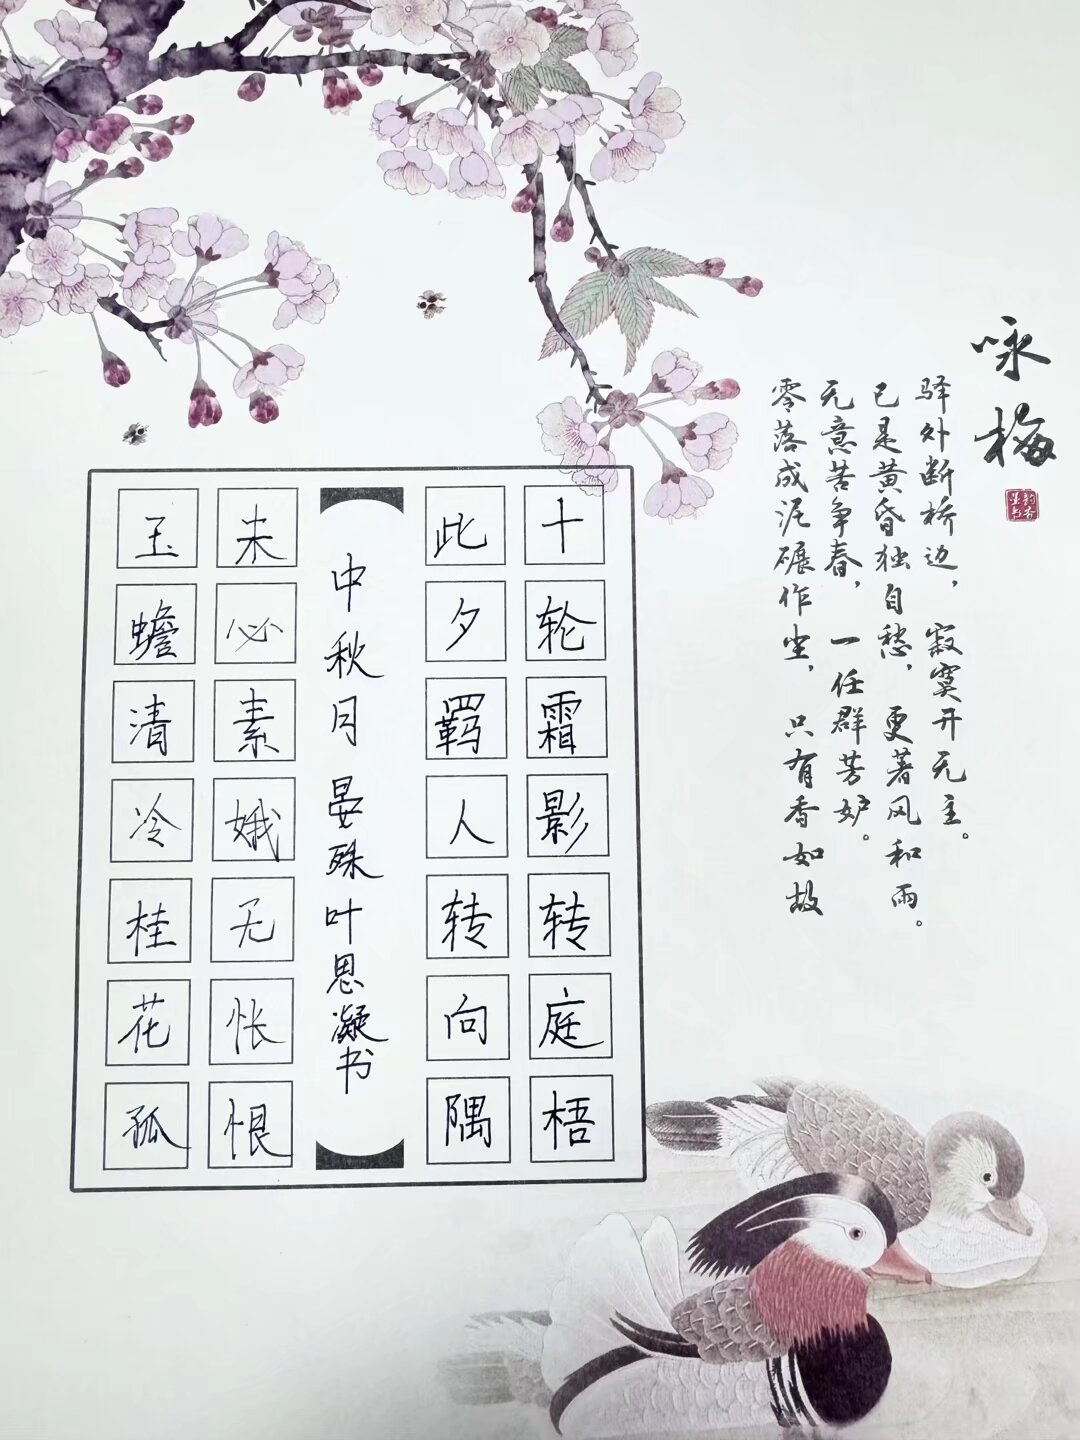 咏梅
驿外断桥边，寂寞开无主。
已是黄昏独自愁，更著风和雨。
无意苦争春，一任群芳妒。
零落成泥碾作尘，只有香如故
十轮霜影转庭梧
此夕羁人转向隅
中秋月 晏殊 叶思凝书
未必素娥无怅恨
玉蟾清冷桂花孤